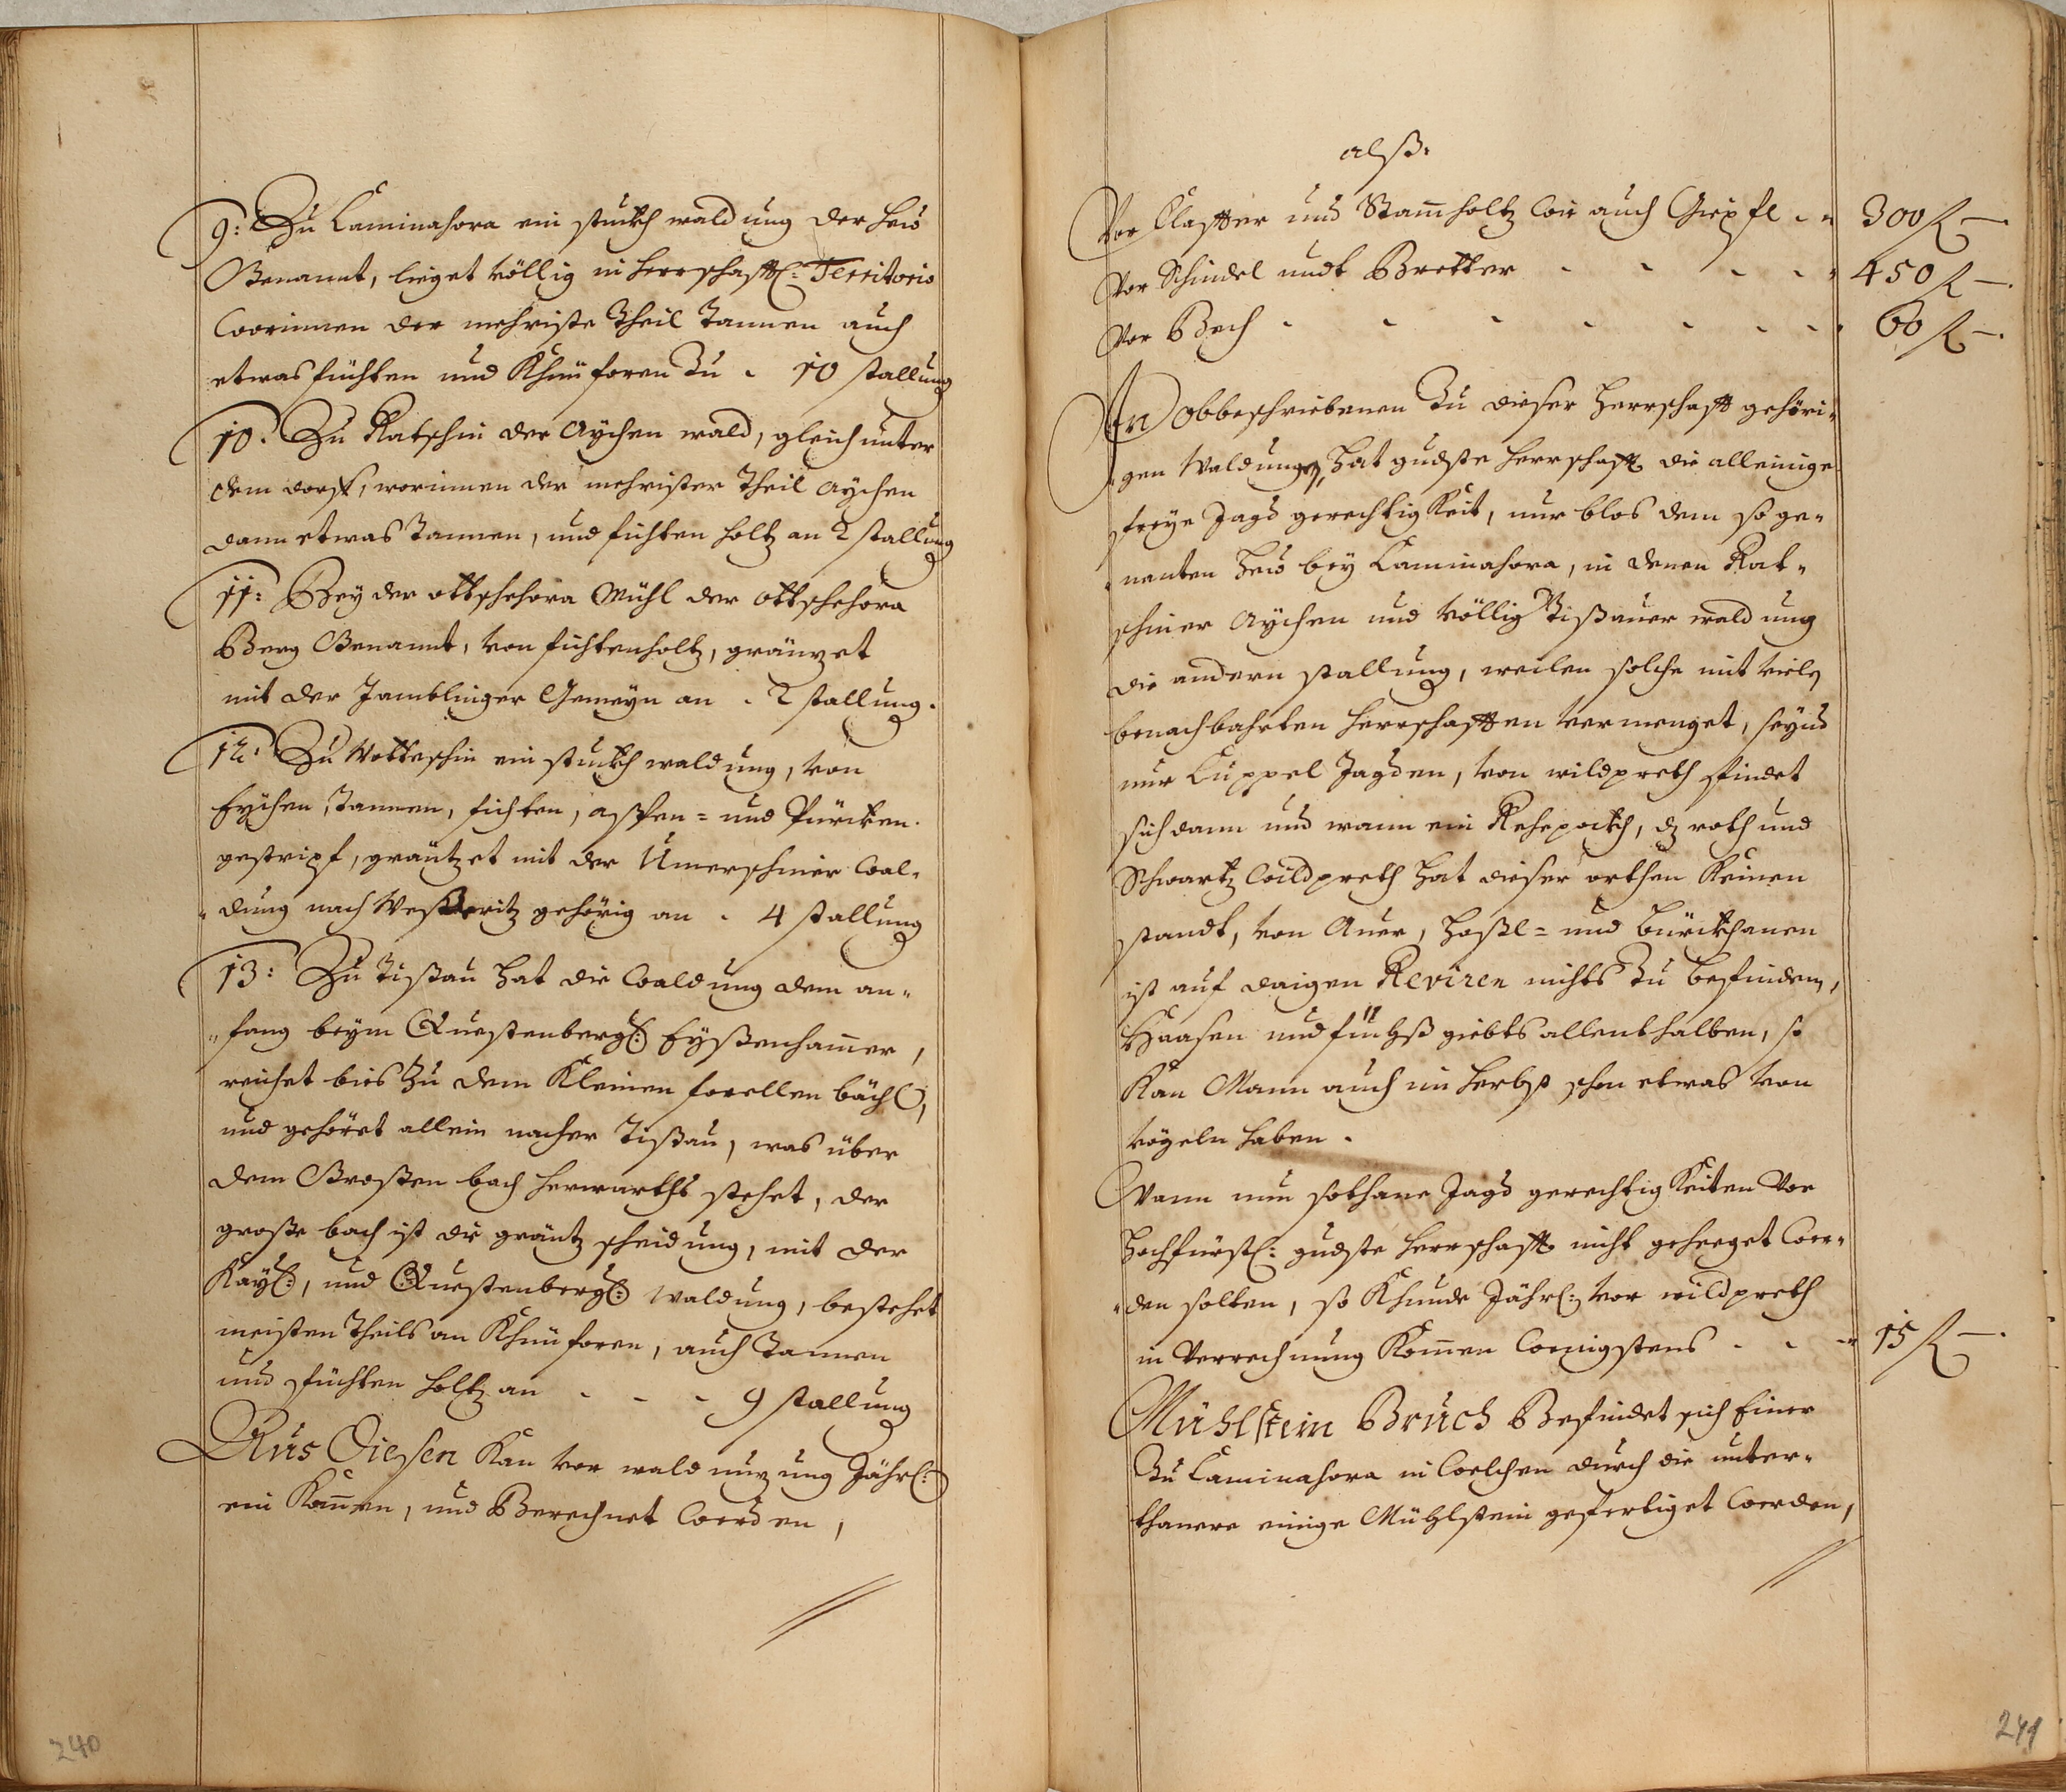 9: Zu Caminahora ein stuckh waldung der heio
Benannt, lieget völlig in herrschafftl: Territorio
Worinnen der mehriste Theil Tannen auch
etwas füchten und Khünforen Zu . 10 stallung
10. Zu Ratschin der Aychen wald, gleich unter
dem dorff, worinnen der mehrister Theil Aychen
dann etwas Tannen, und fichten holtz an 2 stallung
11: Bey der ottschehora Mühl der ottschehora
Berg Benannt, von fichtenholtz, gränzet
mit der Jamblinger Gemeyn an . 2 stallung.
12: Zu Wotteschin ein stuckh waldung, von
Eychen, Tannen, fichten, aspen= und Pürcken-
gestripf, gräntzet mit der Umerschiner Wal-
dung nach Weseritz gehörig an . 4 stallung
13: Zu Tissau hat die Waldung dem an-
fang beym Questenbergl: Eyßenhammer,
reichet bies Zu dem Kleinen forellen bächl,
und gehöret allein nacher Tissau, was über
dem Großen bach herwarths stehet, der
große bach ist die gräntz scheidung, mit der
Kayl:, und Questenbergl: Waldung, bestehet
meisten Theils an Khünforen, auch Tannen
und füchten holtz an . . . 9 stallung
Aus Diesen Kan vor wald nuzung Jährl:
ein Kommen, und Berechnet Werden,
240
alß.
Vor Claffter und Stammholtz Wie auch Giepfl . . 300 fl —
Vor Schindel undt Bretter - - - - 450 fl —.
Vor Bech - - - - - - - 60 fl —.
In obbeschriebenen Zu dieser Herrschafft gehöri-
gen Waldungen, hat gndste herrschafft die alleinige
freye Jagd gerechtigkeit, nur blos dem so ge-
nanten heio bey Caminahora, in denen Rat-
schiner Aychen und völlig Tissauer waldung
die andern stallung, weilen solche mit vielen
benachbahrten herrschafften vermenget, seynd
nur Kuppel Jagden, von wildpreth findet
sich dann und wann ein Rehepockh, dz roth und
Schwartz Wildpreth hat dieser orthen Keinen
standt, von Auer, haßl= und bürckhanen
ist auf daigen Reviren nichts Zu befinden,
Haasen und füchß giebts allenthalben, so
Kan Mann auch im herbst schon etwas von
vögeln haben.
Wann nun sothane Jagd gerechtigkeiten Vor
Hochfürstl: gndste herrschafft nicht geheeget Wer-
den solten, so Khunde Jährl: vor wildpreth
in Verrechnung Kommen Wenigstens . . - 15 fl —.
Mühlstein Bruch Befindet sich Einer
Zu Caminahora in Welchen durch die unter-
thanere einige Mühlstein gefertiget Werden,
241